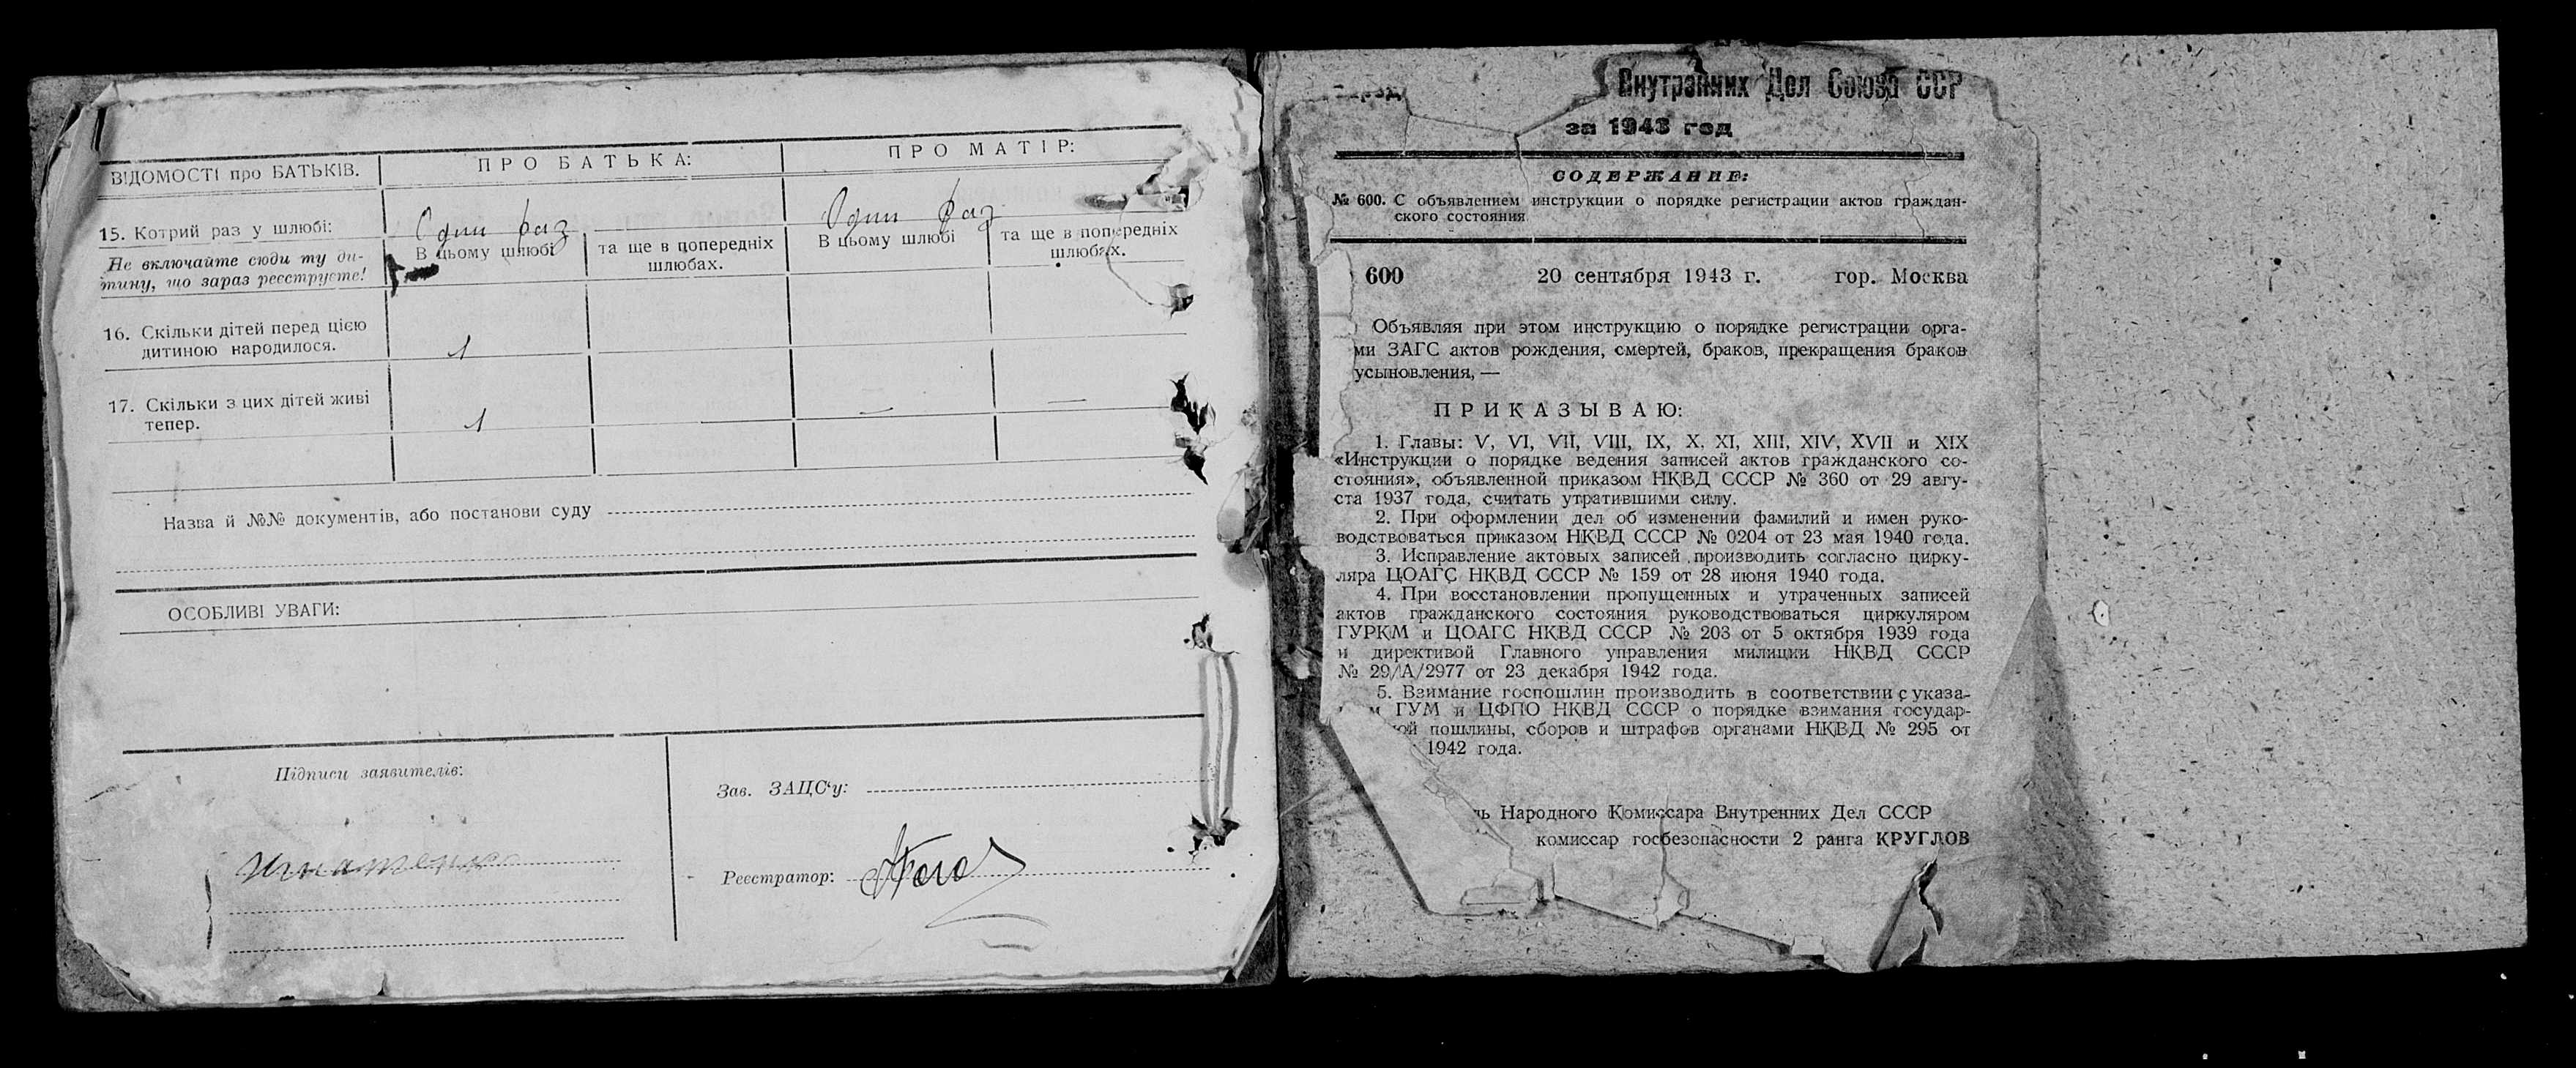 ВІДОМОСТІ про БАТЬКІВ.
ПРО БАТЬКА:
ПРО МАТІР:
15. Котрий раз у шлюбі:
Один раз
Один раз
Не включайте сюди ту ди-
тину, що зараз реєструєте!
В цьому шлюбі
та ще в попередніх
шлюбах.
В цьому шлюбі
та ще в попередніх
шлюбах.
16. Скільки дітей перед цією
дитиною народилося.
1
17. Скільки з цих дітей живі
тепер.
1
— —
Назва й №№ документів, або постанови суду
ОСОБЛИВІ УВАГИ:
Підписи заявителів:
Игнатенко
Зав. ЗАЦС‘у:
Реєстратор:
Внутренних Дел Союза ССР
за 1943 год
СОДЕРЖАНИЕ:
№ 600. С объявлением инструкции о порядке регистрации актов граждан-
ского состояния
600 20 сентября 1943 г. гор. Москва
Объявляя при этом инструкцию о порядке регистрации орга-
ми ЗАГС актов рождения, смертей, браков, прекращения браков
усыновления, —
ПРИКАЗЫВАЮ:
1. Главы: V, VI, VII, VIII, IX, X. XI, XIII, XIV, XVII и XIX
«Инструкции о порядке ведения записей актов гражданского со-
стояния», объявленной приказом НКВД СССР № 360 от 29 авгу-
ста 1937 года, считать утратившими силу.
2. При оформлении дел об изменении фамилий и имен руко-
водствоваться приказом НКВД СССР № 0204 от 23 мая 1940 года.
3. Исправление актовых записей производить согласно цирку-
ляра ЦОАГС НКВД СССР № 159 от 28 июня 1940 года.
4. При восстановлении пропущенных и утраченных записей
актов гражданского состояния руководствоваться циркуляром
ГУРКМ и ЦОАГС НКВД СССР № 203 от 5 октября 1939 года
и директивой Главного управления милиции НКВД СССР
№ 29/А/2977 от 23 декабря 1942 года.
5. Взимание госпошлин производить в соответствии с указа-
м ГУМ и ЦФПО НКВД СССР о порядке взимания государ-
ой пошлины, сборов и штрафов органами НКВД № 295 от
1942 года.
ь Народного Комиссара Внутренних Дел СССР
комиссар госбезопасности 2 ранга КРУГЛОВ